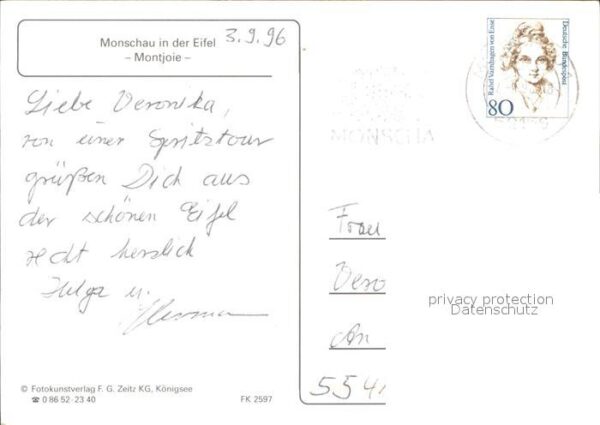 Monschau in der Eifel 3.9.96
– Montjoie –
Liebe Veronika,
von einer Spritztour
grüßen Dich aus
der schönen Eifel
recht herzlich
Helga u.
© Fotokunstverlag F. G. Zeitz KG, Königsee
☎ 0 86 52 - 23 40
FK 2597
Rahel Varnhagen von Ense
Deutsche Bundespost
80
MONSCHA
Frau
Vero
An
554
privacy protection
Datenschutz